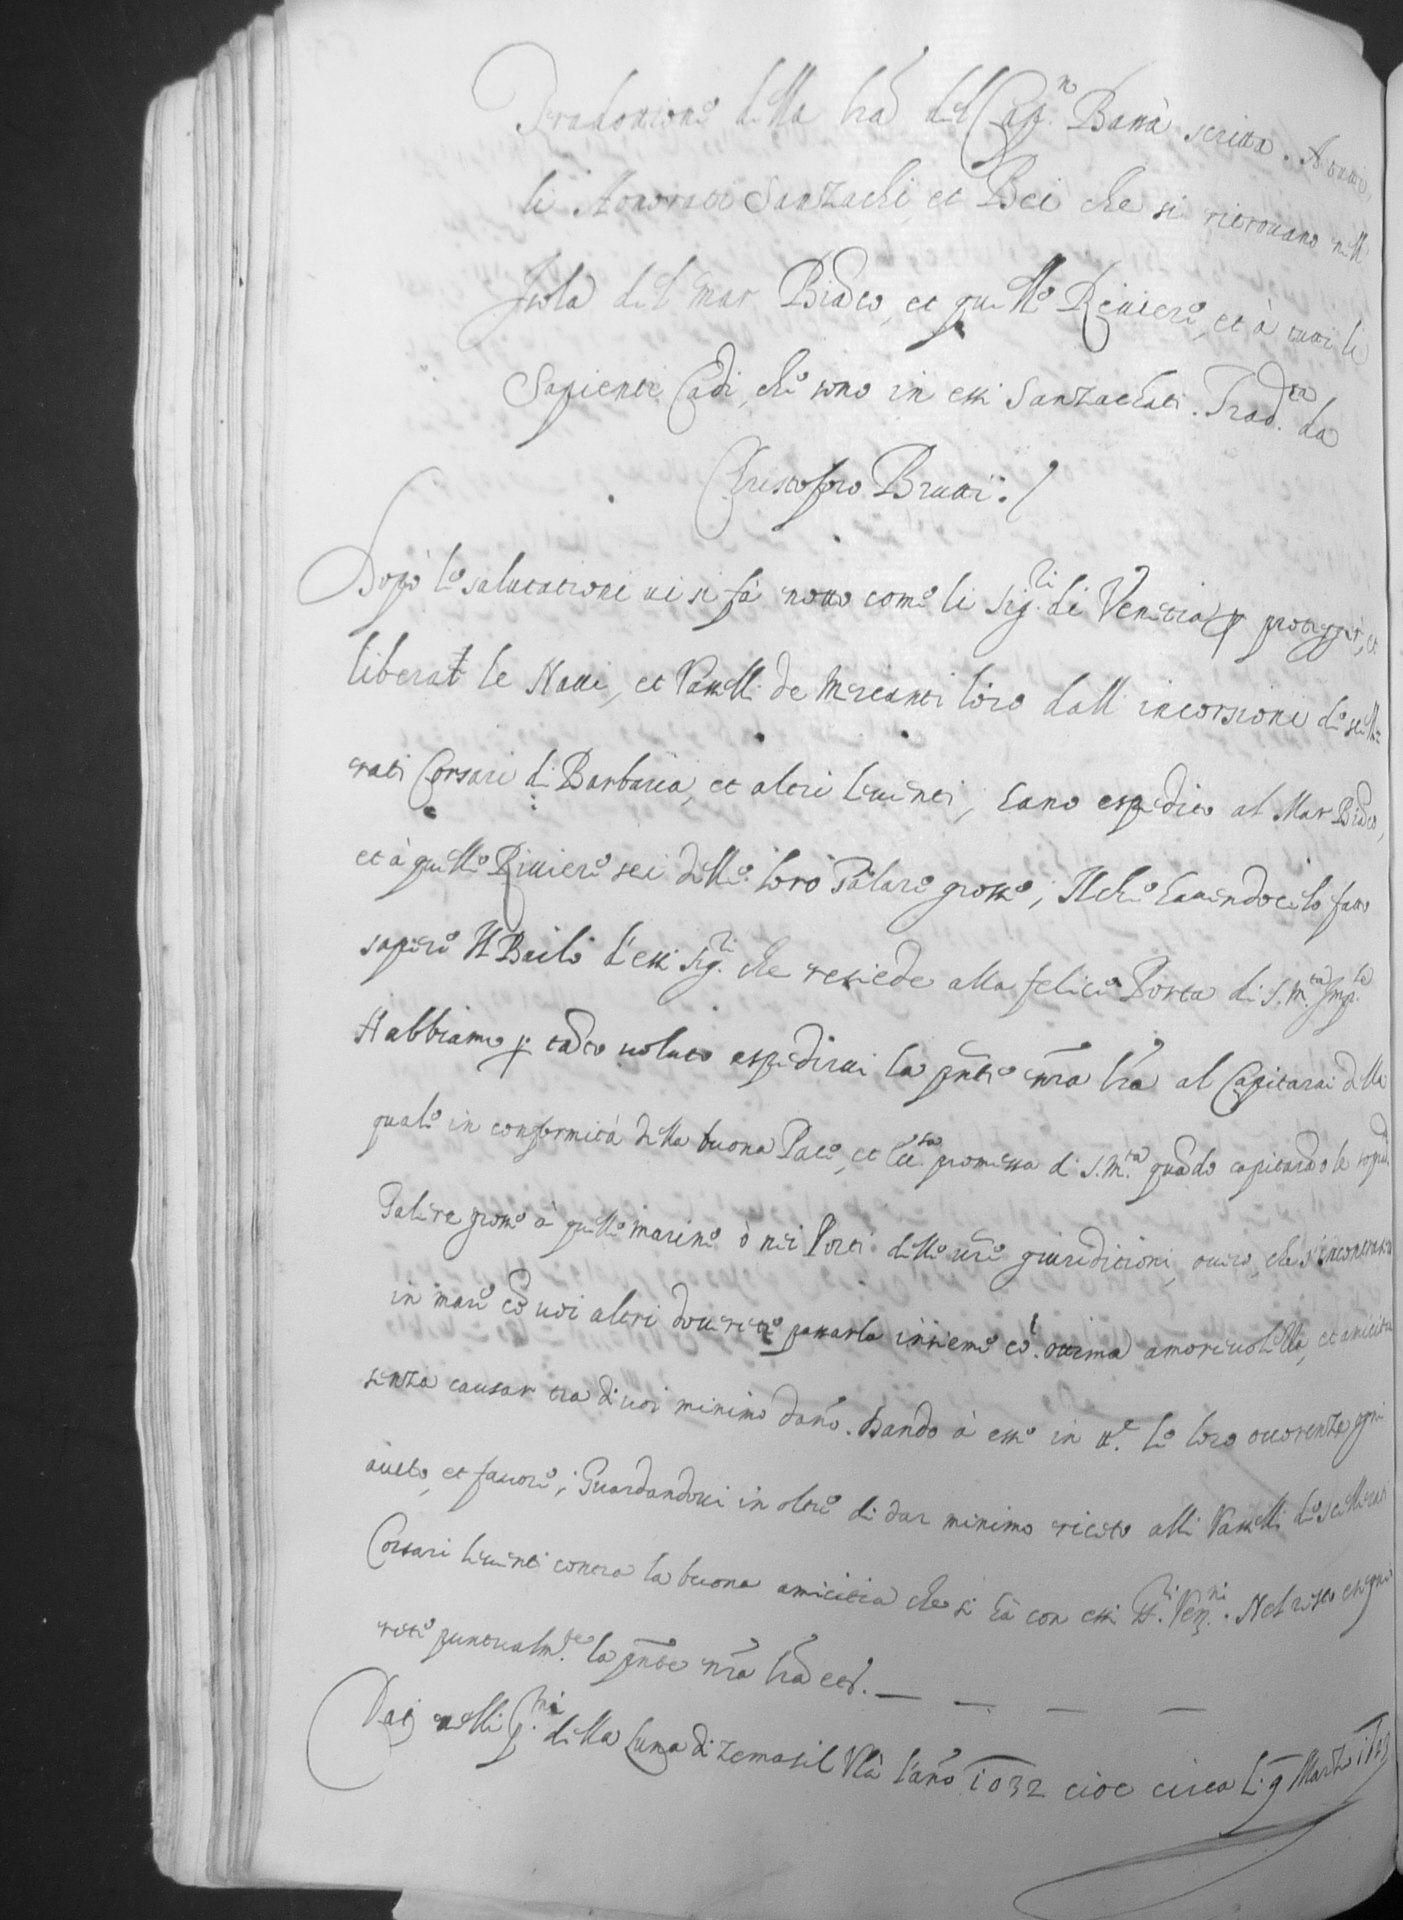 Tradottione della lr̃a del Cap.no Bassà scritta. A tutti
li Honorati Sanzachi, et Bei che si ritrouano nell'
Isola del mar Biãco, et quelle Riuiere, et à tutti li
Sapienti Cadi, che sono in essi Sanzachati. Trad.ta da
Christofforo Brutti ./
Dopò le salutationi ui si fà noto come li Sig.ri di Venetia p̲ protegger, et
liberar le Naui, et Vasselli de Mercanti loro dall' incorsioni de scelle=
rati Corsari di Barbaria, et altri leuenti, hano espedito al Mar Biãco,
et à quelle Riuiere sei delle loro Galere grosse; Il che hauendocelo fatto
sapere Il Bailo d'essi Sig.ri che resiede alla felice Porta di S. M.tà Imp.le
Habbiamo p̲ tãto uoluto espedirui la pñte nr̃a lr̃a al Capitar della
quale in conformità della buona Pace, et Ecc.sa promessa di S. M.tà quãdo capitarão le sopred.
Galere grosse à quelle marine ò nei Porti delle ur̃e giuriditioni, ouero, che s'incontrassero
in mare cõ uoi altri douerete passarla insieme cõ ottima amoreuolezza, et amicitia
senza causar tra di uoi minimo dano. Dando à esse in tt.e le loro occorenze ogni
aiuto, et fauore; Guardandoui in oltre di dar minimo ricetto alli Vasselli de scellerati
Corsari leuenti contra la buona amicitia che si hà con essi SS.ri Ven.ni. Nel resto essegui
rete puntualm.te la pñte nr̃a lr̃a etc. — — — —
Dat nelli p.mi della Luna di Zemasil Vlà l'año 1032 cioe circa li 9 Marzo 1623